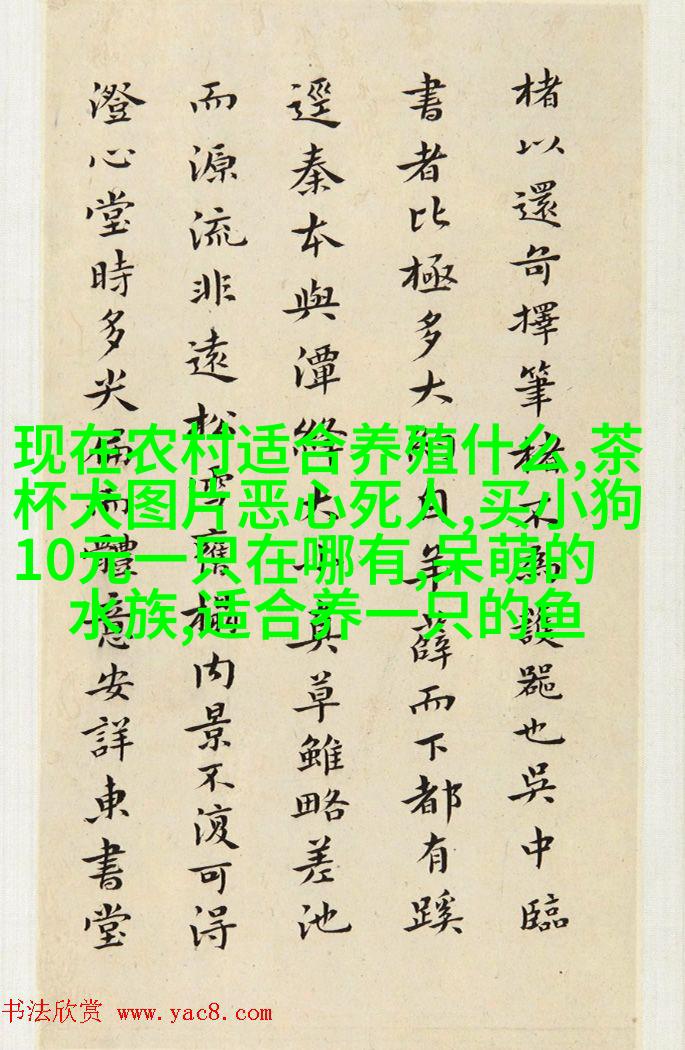 楮以還奇擇筆楮不護器也吳中臨
書者比極多大自薛而下都有蹊
逕秦本與潭絳真草雖略差池
而源流非遠松雪内景不復可得
澄心堂時多尖而體意安詳東書堂
现在农村适合养殖什么,茶
杯犬图片恶心死人,买小狗
10元一只在哪有,呆萌的
水族,适合养一只的鱼
书法欣赏 www.yac8.com